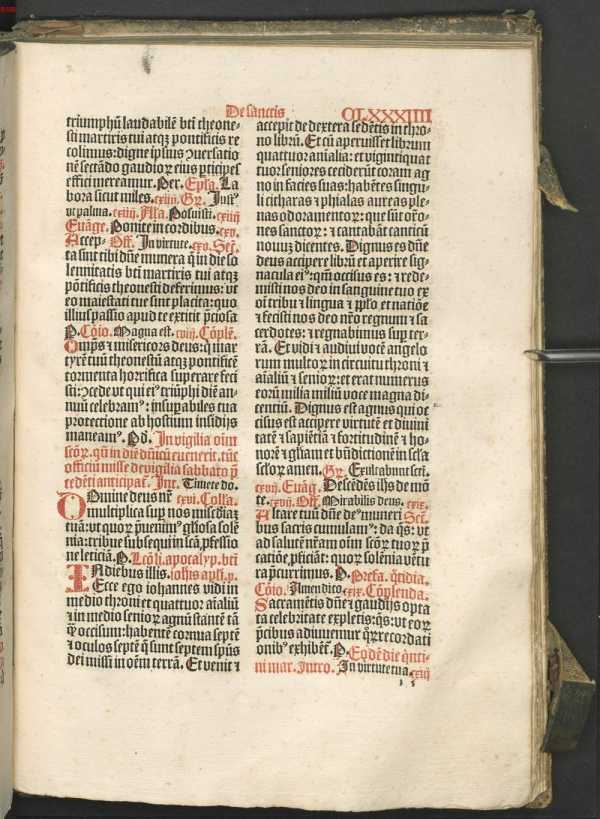 De sanctis
CLXXXIIII
triumphū laudabilē bti theone-
sti martiris tui atqꝫ pontificis re
colimus: digne ipsius ꝯuersatio
nē sectādo gaudioꝝ eius pticipes
effici mereamur. Per. Epľa. La
bora sicut miles. cxiiij. Gꝛ. Just9
vt palma. cxiiij. Alľa. Posuisti. cxiiij
Euāge. Ponite in cordibus. cxv.
Accep- Off. In virtute. cxv. Sec̄.
ta sint tibi dn̄e munera q̄ in die so
lennitatis bti martiris tui atqꝫ
pōtificis theonesti deferimus: vt
eo maiestati tue sint placita: quo
illius passio apud te extitit p̄ciosa
P. Cōio. Magna est. cviij. Cōplē.
Omīps ⁊ misericors deus: q̄ mar
tyrē tuū theonestū atqꝫ pontificē
tormenta horrifica superare feci
sti: ꝯcede vt qui ei9 triūphi diē an-
nuū celebram9: insupabiles tua
protectione ab hostium insidijs
maneam9. Pd. In vigilia oīm
scōꝝ. qn̄ in die dn̄icū euenerit. tūc
officiū misse de vigilia sabbato p̄
cedēti anticipat. Int. Timete do.
Omine deus nr̄ cxvi. Collā.
multiplica sup nos miaȝ
tuā: vt quoꝝ p̄uenim9 gľiosa solē
nia: tribue subsequi in scā pfessio
ne leticiā. P. Lcō li. apocalyp. bti
IN diebus illis. iohīs apľi. v.
Ecce ego iohannes vidi in
medio throni et quattuoꝛ aīaliū
⁊ in medio senioꝝ agnū stantē tā
q̄ occisum: habentē cornua septē
⁊ oculos septē q̄ sunt septem spūs
dei missi in oēm terrā. Et venit ⁊
accepit de dextera sedētis in thro-
no librū. Et cū aperuisset librum
quattuoꝛ aīalia: et viginti quat
tuoꝛ senioꝛes ceciderūt coram ag
no in facies suas: habētes singu-
li citharas ⁊ phialas aureas ple-
nas odoramentoꝝ: que sūt oꝛ̄o-
nes sanctoꝝ: ⁊ cantabāt canticū
nouuȝ dicentes. Dignus es dn̄e
deus accipere librū et aperire sig-
nacula ei9: qm̄ occisus es: ⁊ rede-
misti nos deo in sanguine tuo ex
oī tribu ⁊ lingua ⁊ pplo et natiōe
⁊ fecisti nos deo nr̄o regnum ⁊ sa
cerdotes: ⁊ regnabimus sup ter-
rā. Et vidi ⁊ audiui vocē angelo
rum multoꝝ in circuitu throni ⁊
aīaliū ⁊ senioꝝ: et erat numerus
eoꝛū milia miliū voce magna di-
centiū. Dignus est agnus qui oc
cisus est accipere virtutē et diuini
tatē ⁊ sapiētiā ⁊ foꝛtitudinē ⁊ ho-
noꝛē ⁊ gľiam et bn̄dictionē in secľa
secľoꝝ amen. Gꝛ. Exultabunt scti.
cxvij. Euāg. Descēdēs ihs de mō
te. cxvij. Off. Mirabilis deus. cxix.
Altare tuū dn̄e de9 muneri Sec̄.
bus sacris cumulam9: da qs: vt
ad salutē nr̄am oīm scōꝝ tuoꝝ p̄
catiōe pficiāt: quoꝝ solēnia vētu
ra p̄currimus. P. Prefa. q̄tidia.
Cōio. Amen dico. cxix. Cōplenda.
Sacramētis dn̄e ⁊ gaudijs opta
ta celebritate expletis: qs: vt eoꝝ
p̄cibus adiuuemur qꝝ recoꝛdati
onib9 exhibēt. P. Eodē die q̄nti-
ni mar. Intro. In virtute tua. cxiij